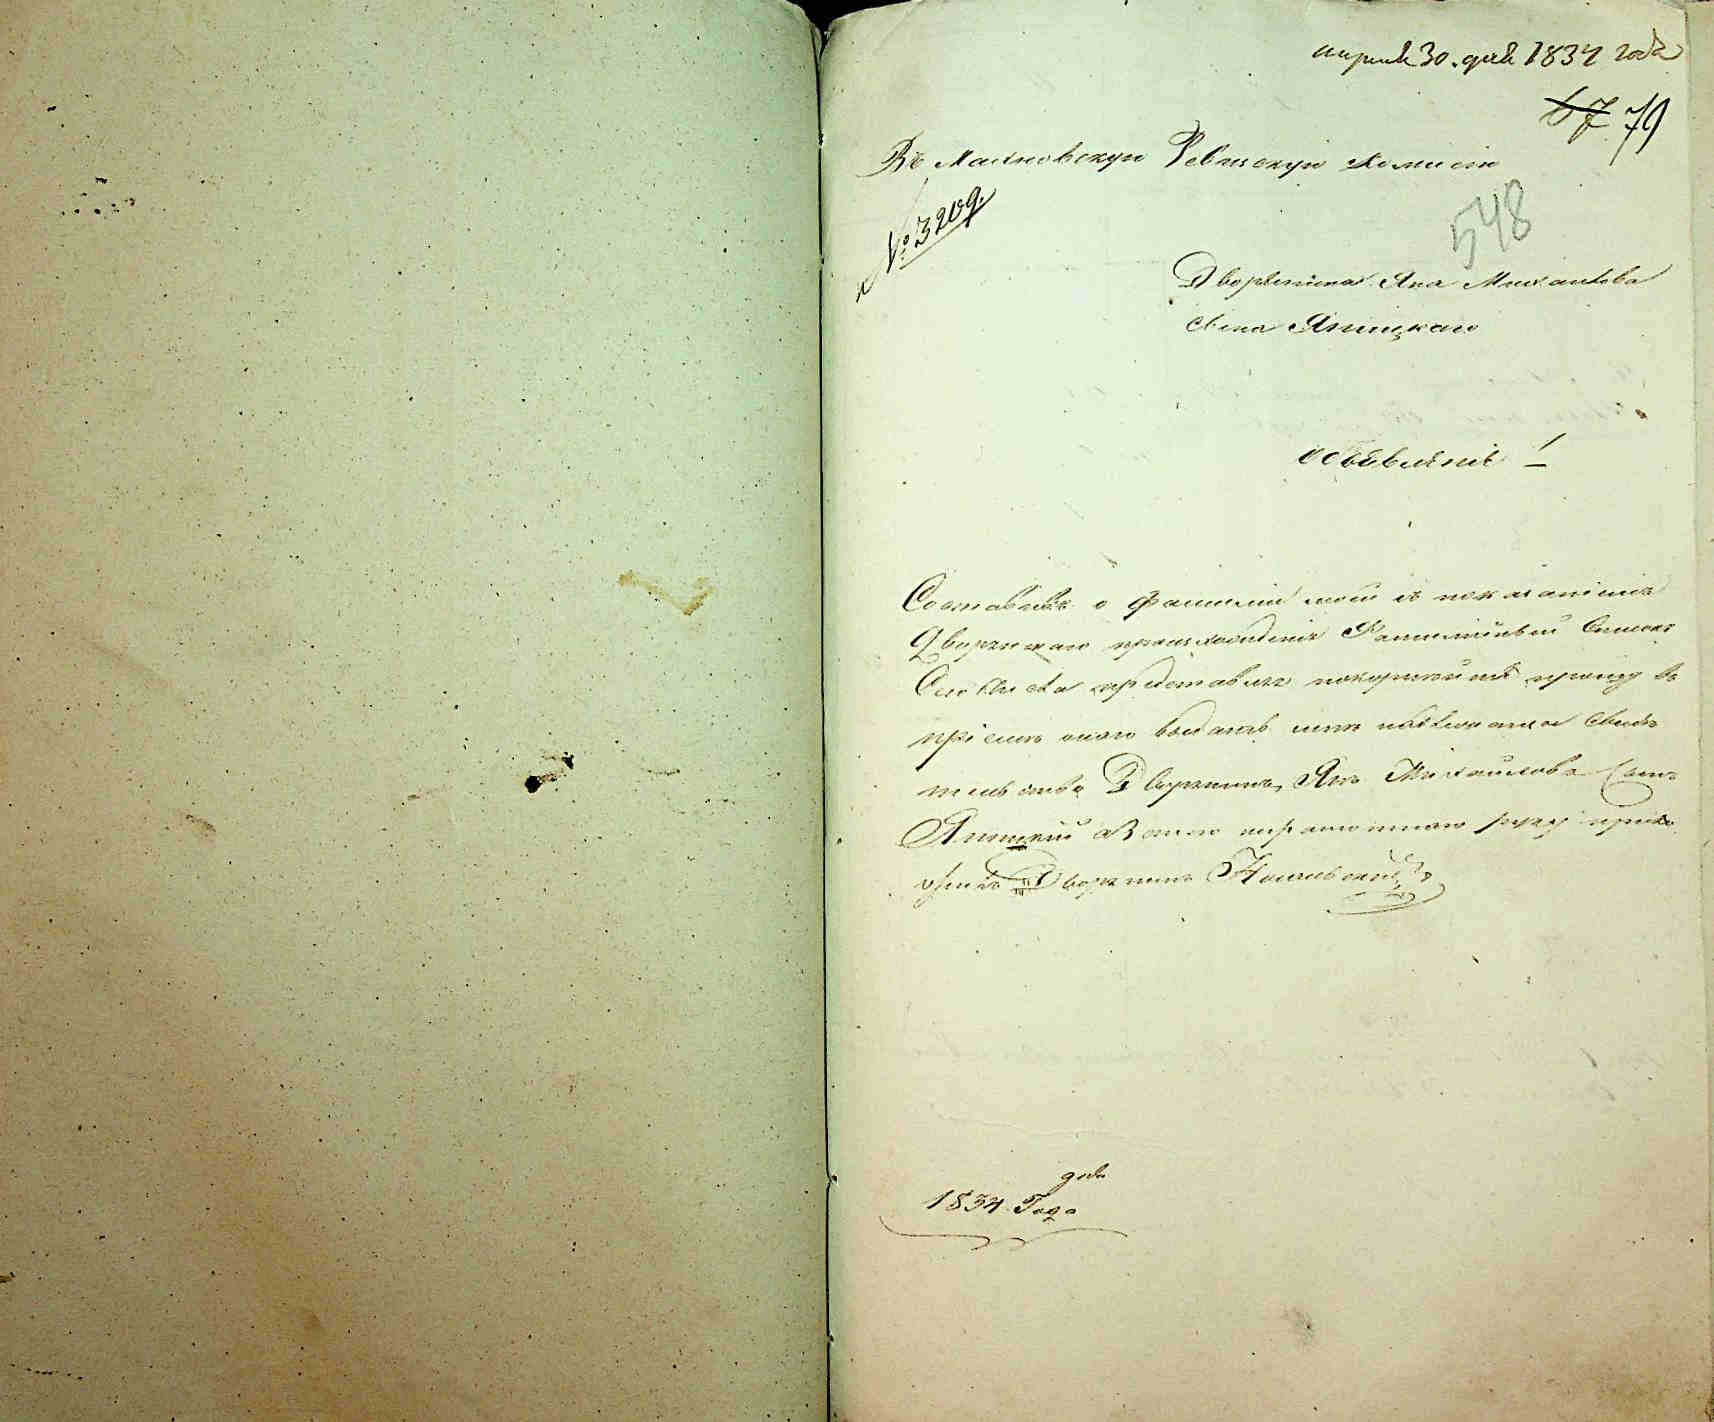 апреля 30. дня 1834 года
67 79
Въ Махновскую Ревизскую Комисію
№ 3209.
548
Дворянина Яна Михайлова
сына Яницкаго
Обявленіе
Составивъ о фамиліи моей съ показаніемъ
Дворянскаго происхожденія Фамилійный Списокъ
представляя покорнейше прошу въ
пріеме онаго выдать мне свиде
тельство Дворянинъ Янъ Михайловъ Сынъ
Яницкій а вместо неграмотнаго руку прило
жилъ Дворянинъ
дня
1834 Года